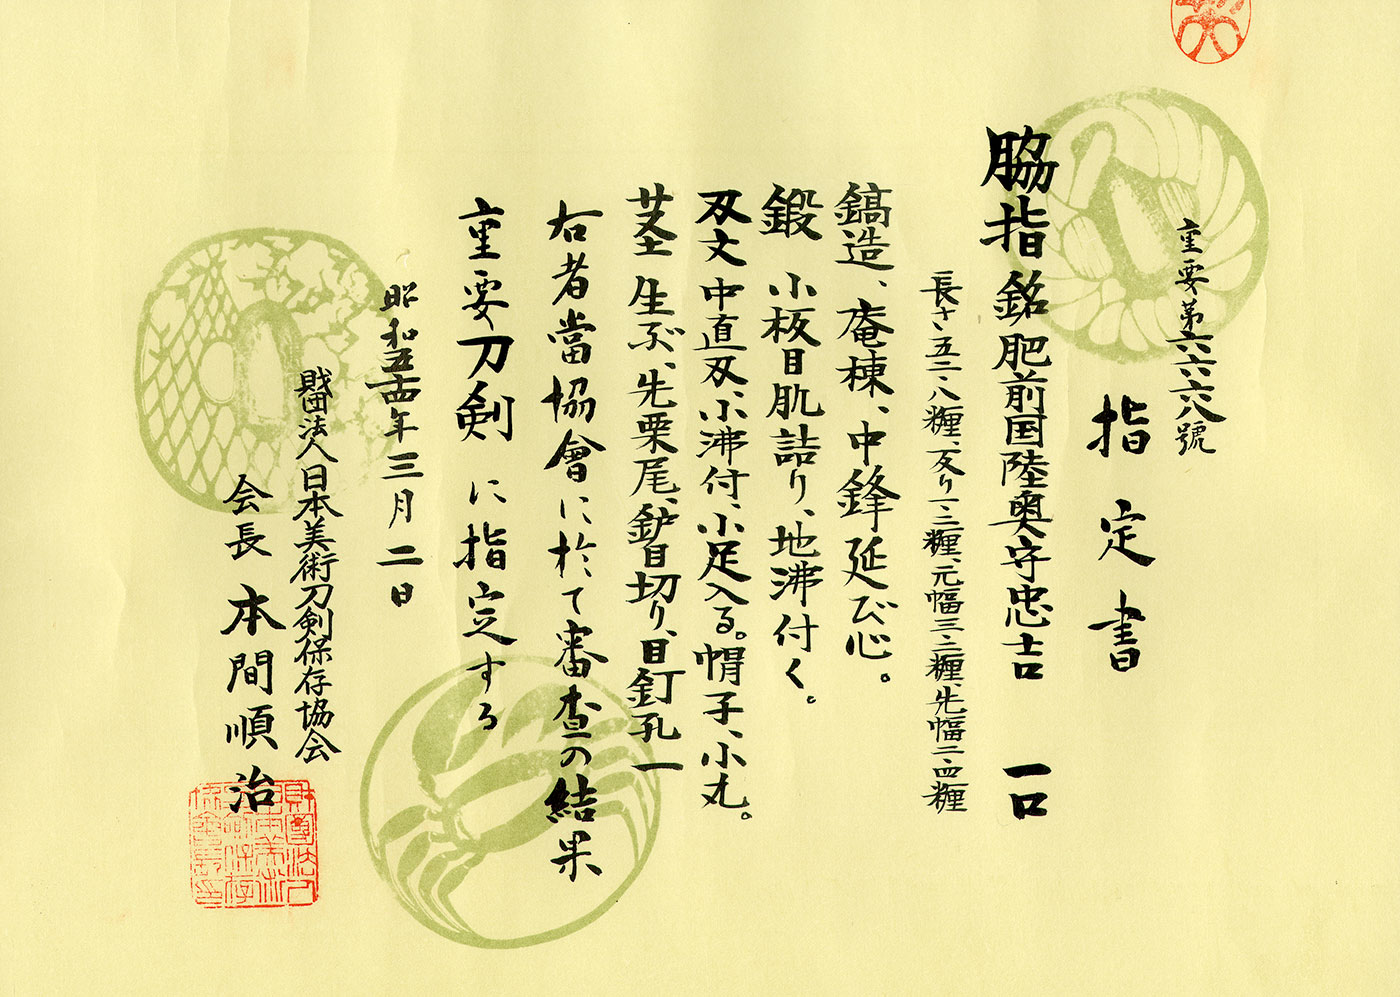 重要第六六六八號
指定書
脇指 銘 肥前国陸奥守忠吉 一口
長さ、五二・八糎、反り一・三糎、元幅三・二糎、先幅二・四糎
鎬造、庵棟、中鋒延び心。
鍛 小板目肌詰り、地沸付く。
刃文 中直刃、小沸付、小足入る。帽子、小丸。
茎 生ぶ、先栗尾、鑢目切り、目釘孔一
右者當協會に於て審査の結果
重要刀剣に指定する
昭和五十四年三月二日
財団法人日本美術刀剣保存協会
会長 本間順治